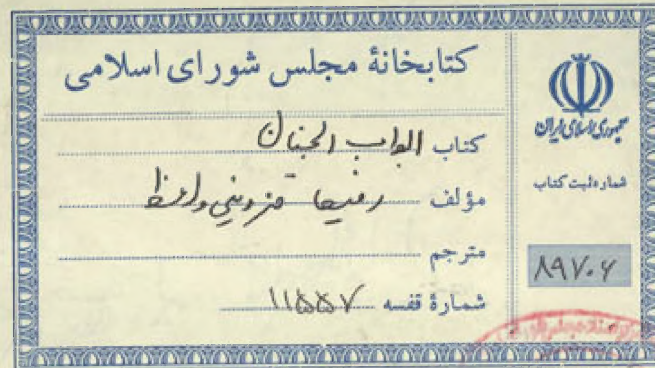 کتابخانهٔ مجلس شورای اسلامی
کتاب ابواب الجنان
مؤلف رفیعا قزوینی واعظ
مترجم
شمارهٔ قفسه ۱۱۵۵۷
جمهوری اسلامی ایران
شماره ثبت کتاب
۸۹۷۰۶